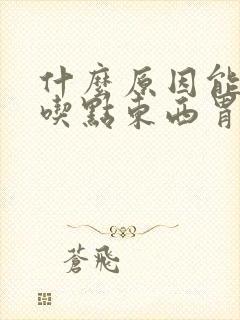 什麼原因能
喫點東西胃
蒼飛